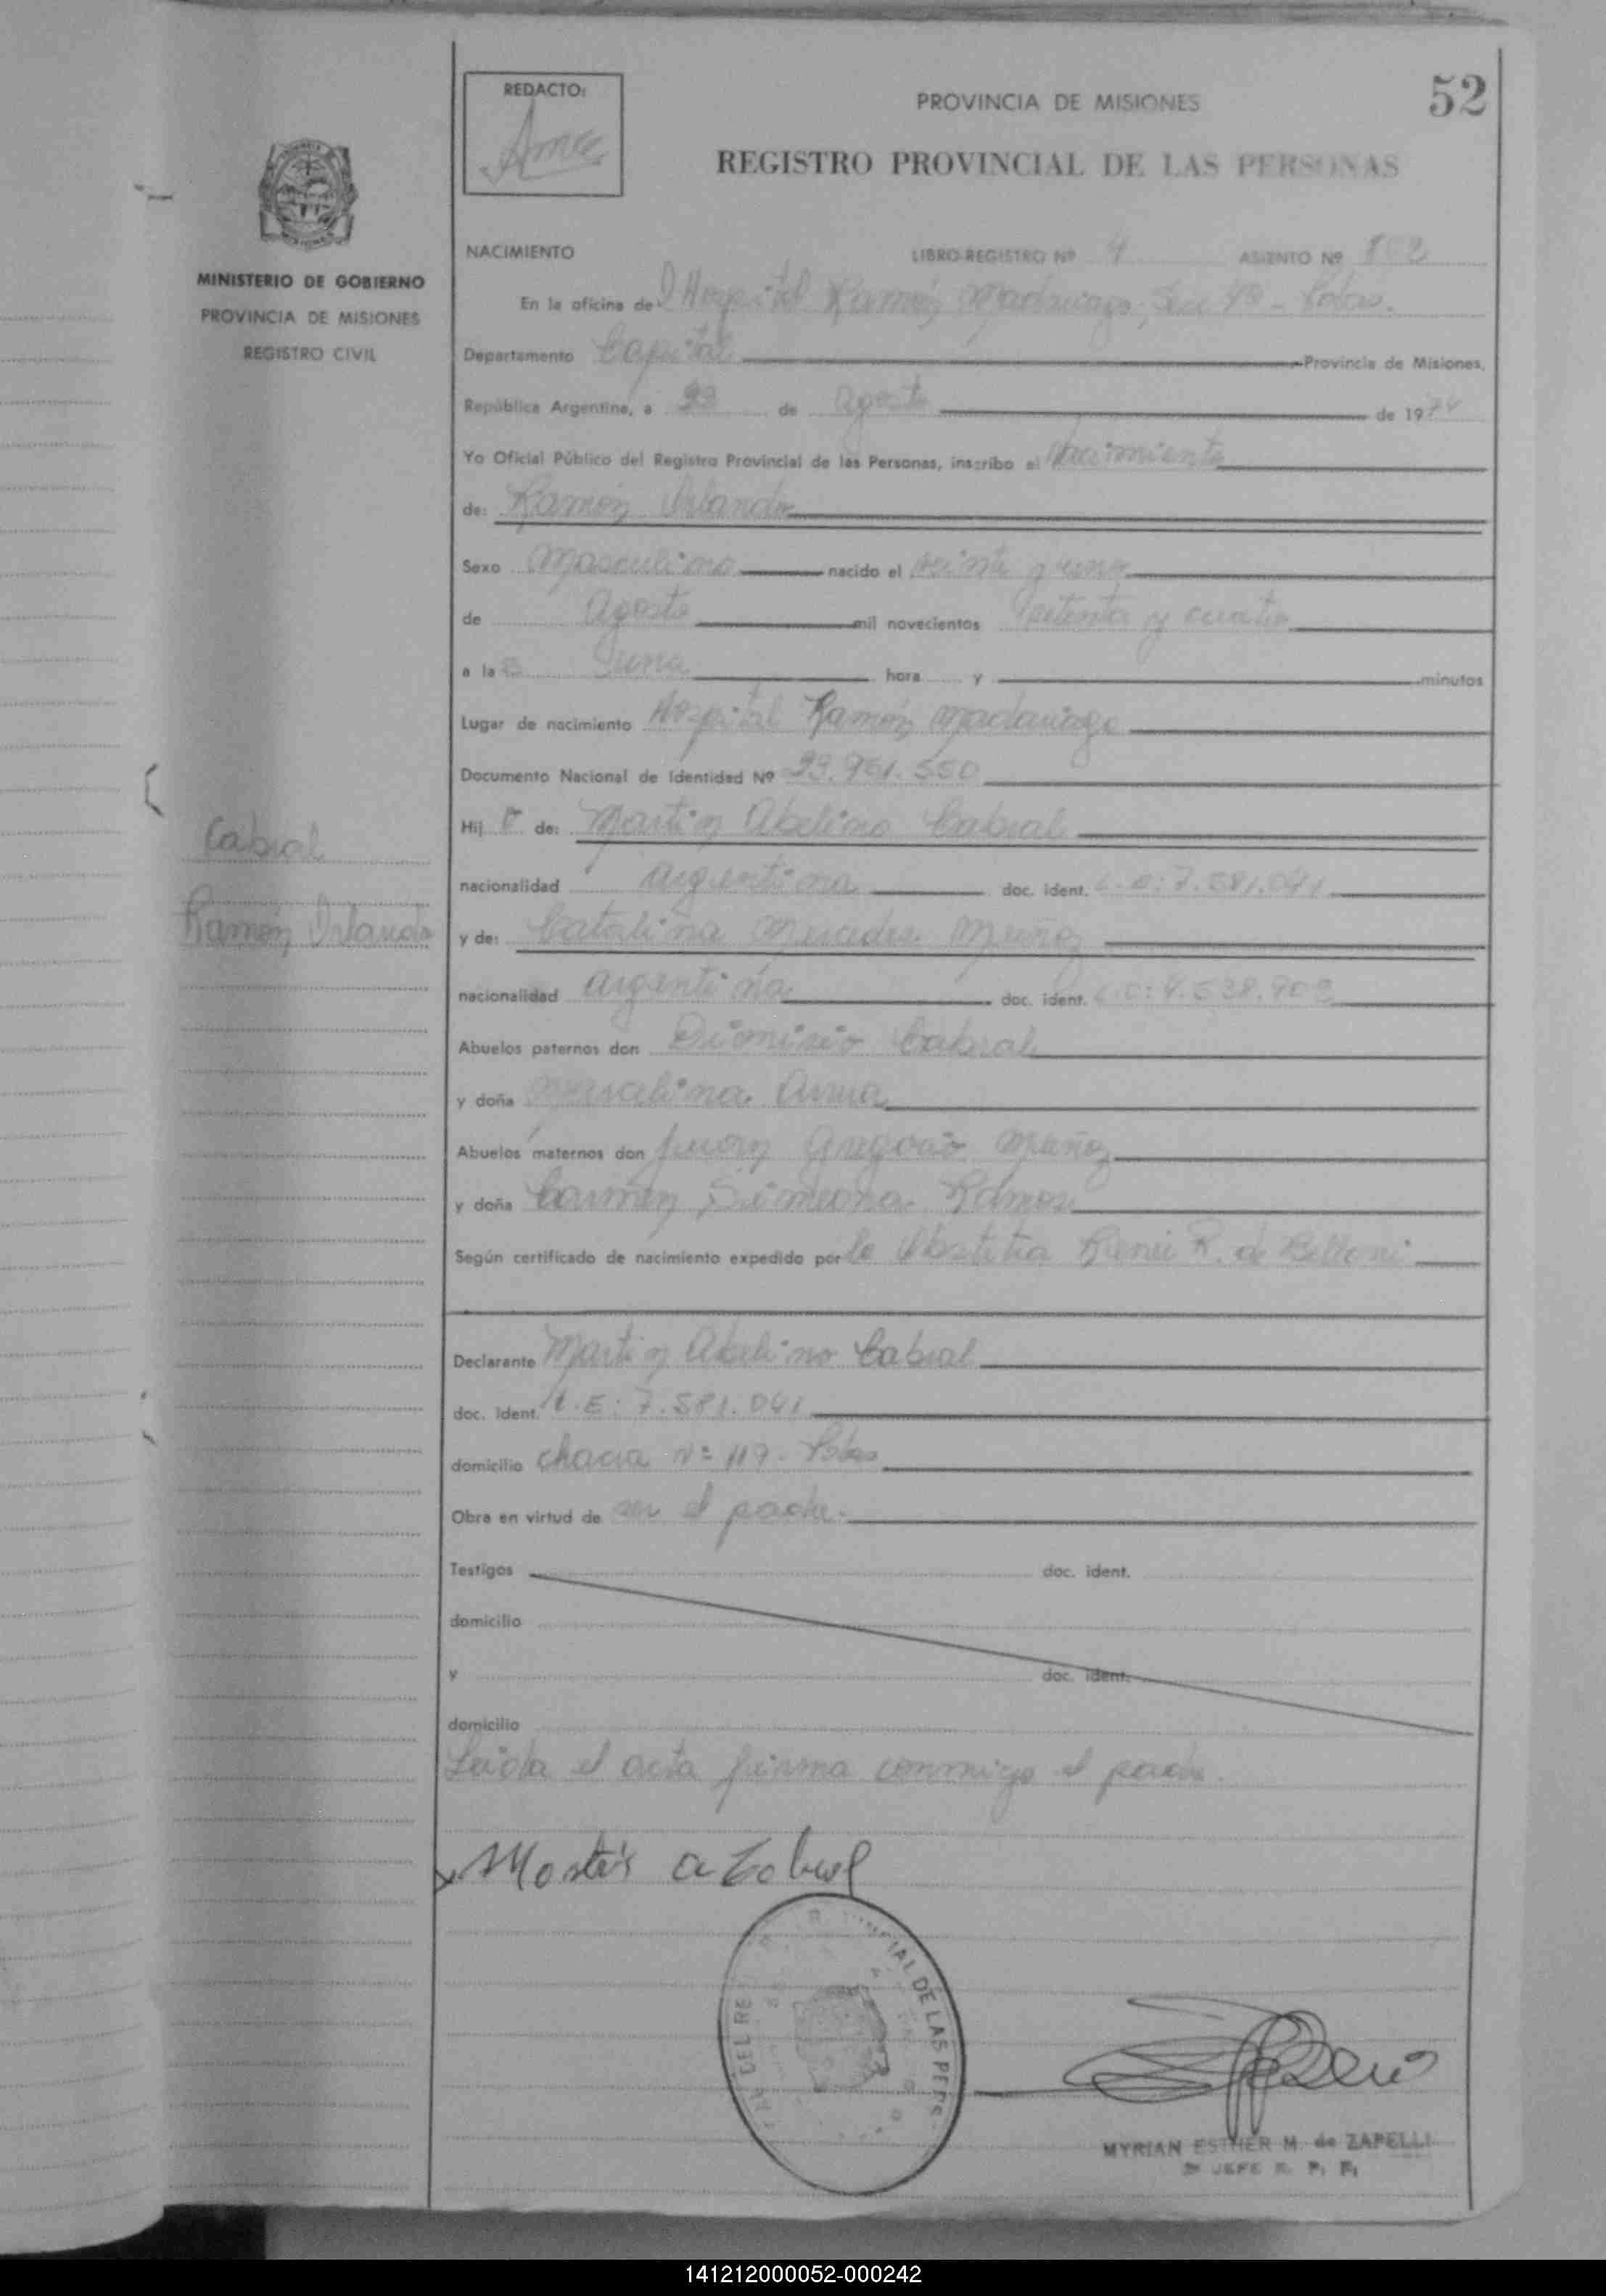 52
REDACTO:
PROVINCIA DE MISIONES
REGISTRO PROVINCIAL DE LAS PERSONAS
MINISTERIO DE GOBIERNO
PROVINCIA DE MISIONES
REGISTRO CIVIL
Cabral
Ramón Orlando
NACIMIENTO LIBRO-REGISTRO Nº 4 ASIENTO Nº 802
En la oficina de Hospital Ramón Madariaga, Secc 4º - Pdas.
Departamento Capital Provincia de Misiones,
República Argentina, a 23 de Agosto de 1974
Yo Oficial Público del Registro Provincial de las Personas, inscribo el nacimiento
de: Ramón Orlando
Sexo Masculino nacido el veinte y uno
de Agosto mil novecientos setenta y cuatro
a la una hora y minutos
Lugar de nacimiento Hospital Ramón Madariaga
Documento Nacional de Identidad Nº 23.951.550
Hij o de: Martin Abelino Cabral
nacionalidad argentina doc. ident. L.E: 7.581.041
y de: Catalina Mercedes Muñoz
nacionalidad argentina doc. ident. L.C: 4.538.902
Abuelos paternos don Dionisio Cabral
y doña
Abuelos maternos don Juan Gregorio Muñoz
y doña Carmen Simeona Ramos
Según certificado de nacimiento expedido por la Obstetra R. de Belloni
Declarante Martin Abelino Cabral
doc. ident. L.E: 7.581.041
domicilio chacra Nº 119 - Pdas
Obra en virtud de ser el padre.
Testigos doc. ident.
domicilio
y doc. ident.
domicilio
Leida el acta firma conmigo el padre.
Martin a Cabral
DEL RE CIAL DE LAS PERS
MYRIAN ESTHER M. de ZAPELLI
JEFE R. P. P.
141212000052-000242